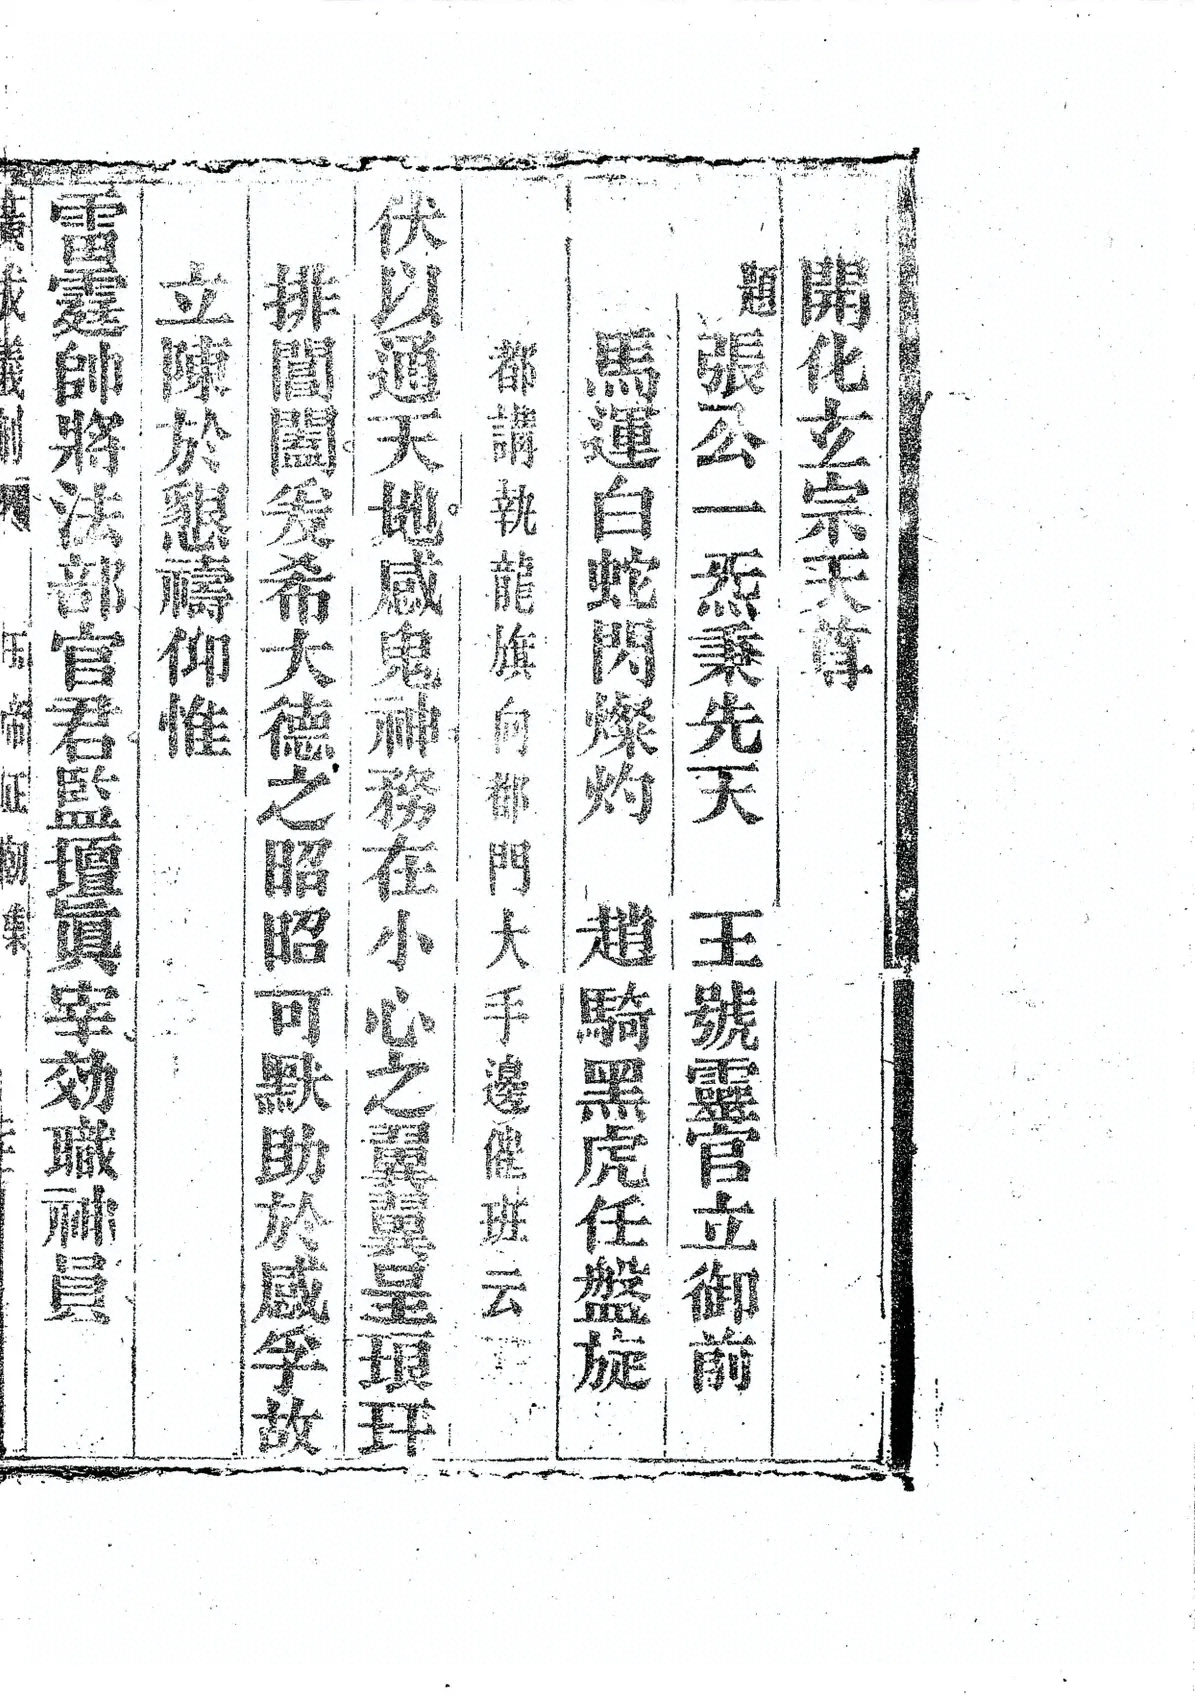 開化玄宗天尊
題張公一炁秉先天　王號靈官立御前
馬運白蛇閃燦灼　趙騎黑虎任盤旋
都講執龍旗向都門大手邊催班云
伏以通天地感鬼神務在小心之翼翼呈琅玕
排閶闔爰希大德之昭昭可默助於感孚故
立陳於懇禱仰惟
雷霆帥將法部官君監壇眞宰効職神員
廣成儀制　正朝集